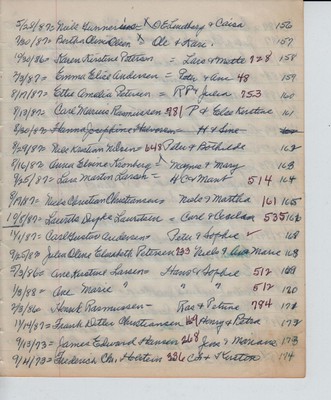 5/28/87 = Niels Gunnersen = O E Lundberg & Caisa 156
7/20/87 = Bertha Oline Olsen = Ole & Kari. 157
10/20/86 = Karen Kirstine Petersen = Lars & Mette 728 158
7/3/87 = Emma Elise Andersen = Peter & Ane 48 159
8/17/87 = Etta Amelia Petersen = R P & Julia 753 160
8/13/87 = Carl Marius Rasmussen 781 P & Else Kirstine 161
Hanna Josephine = H & Sine
8/29/87 = Niels Kristian Nielsen 648 Peter & Bothilde 162
8/16/87 = Anna Elvine = Magnus & Mary 163
9/25/87 = Lars Martin Larsen = H C & Marie 514 164
9/17/87 = Niels Christian Christiansen = Niels & Martha 161 165
10/5/87 = Lauritz Lauritsen = Carl & 535 166
/1/87 = Carl Gustav Andersen Peter & Sophie ✓ 168
9/25/87 = Julia Oline Elisabeth Petersen 733 Niels & Ane Marie 168
5/3/86 = Ane Kirstine Larsen = Hans & Sophie 512 169
1/3/88 = Ane Marie " " " 512 170
2/3/86 = Henrik Rasmussen = Ras & Petrine 794 171
11/14/87 = Frank Ditlev Christiansen 169 Henry & Petra 172
9/19/73 = James Edward Hansen 268 Jens & Mariane 173
9/14/73 = Frederick Chr. Holstein 336 C & Kirsten 174